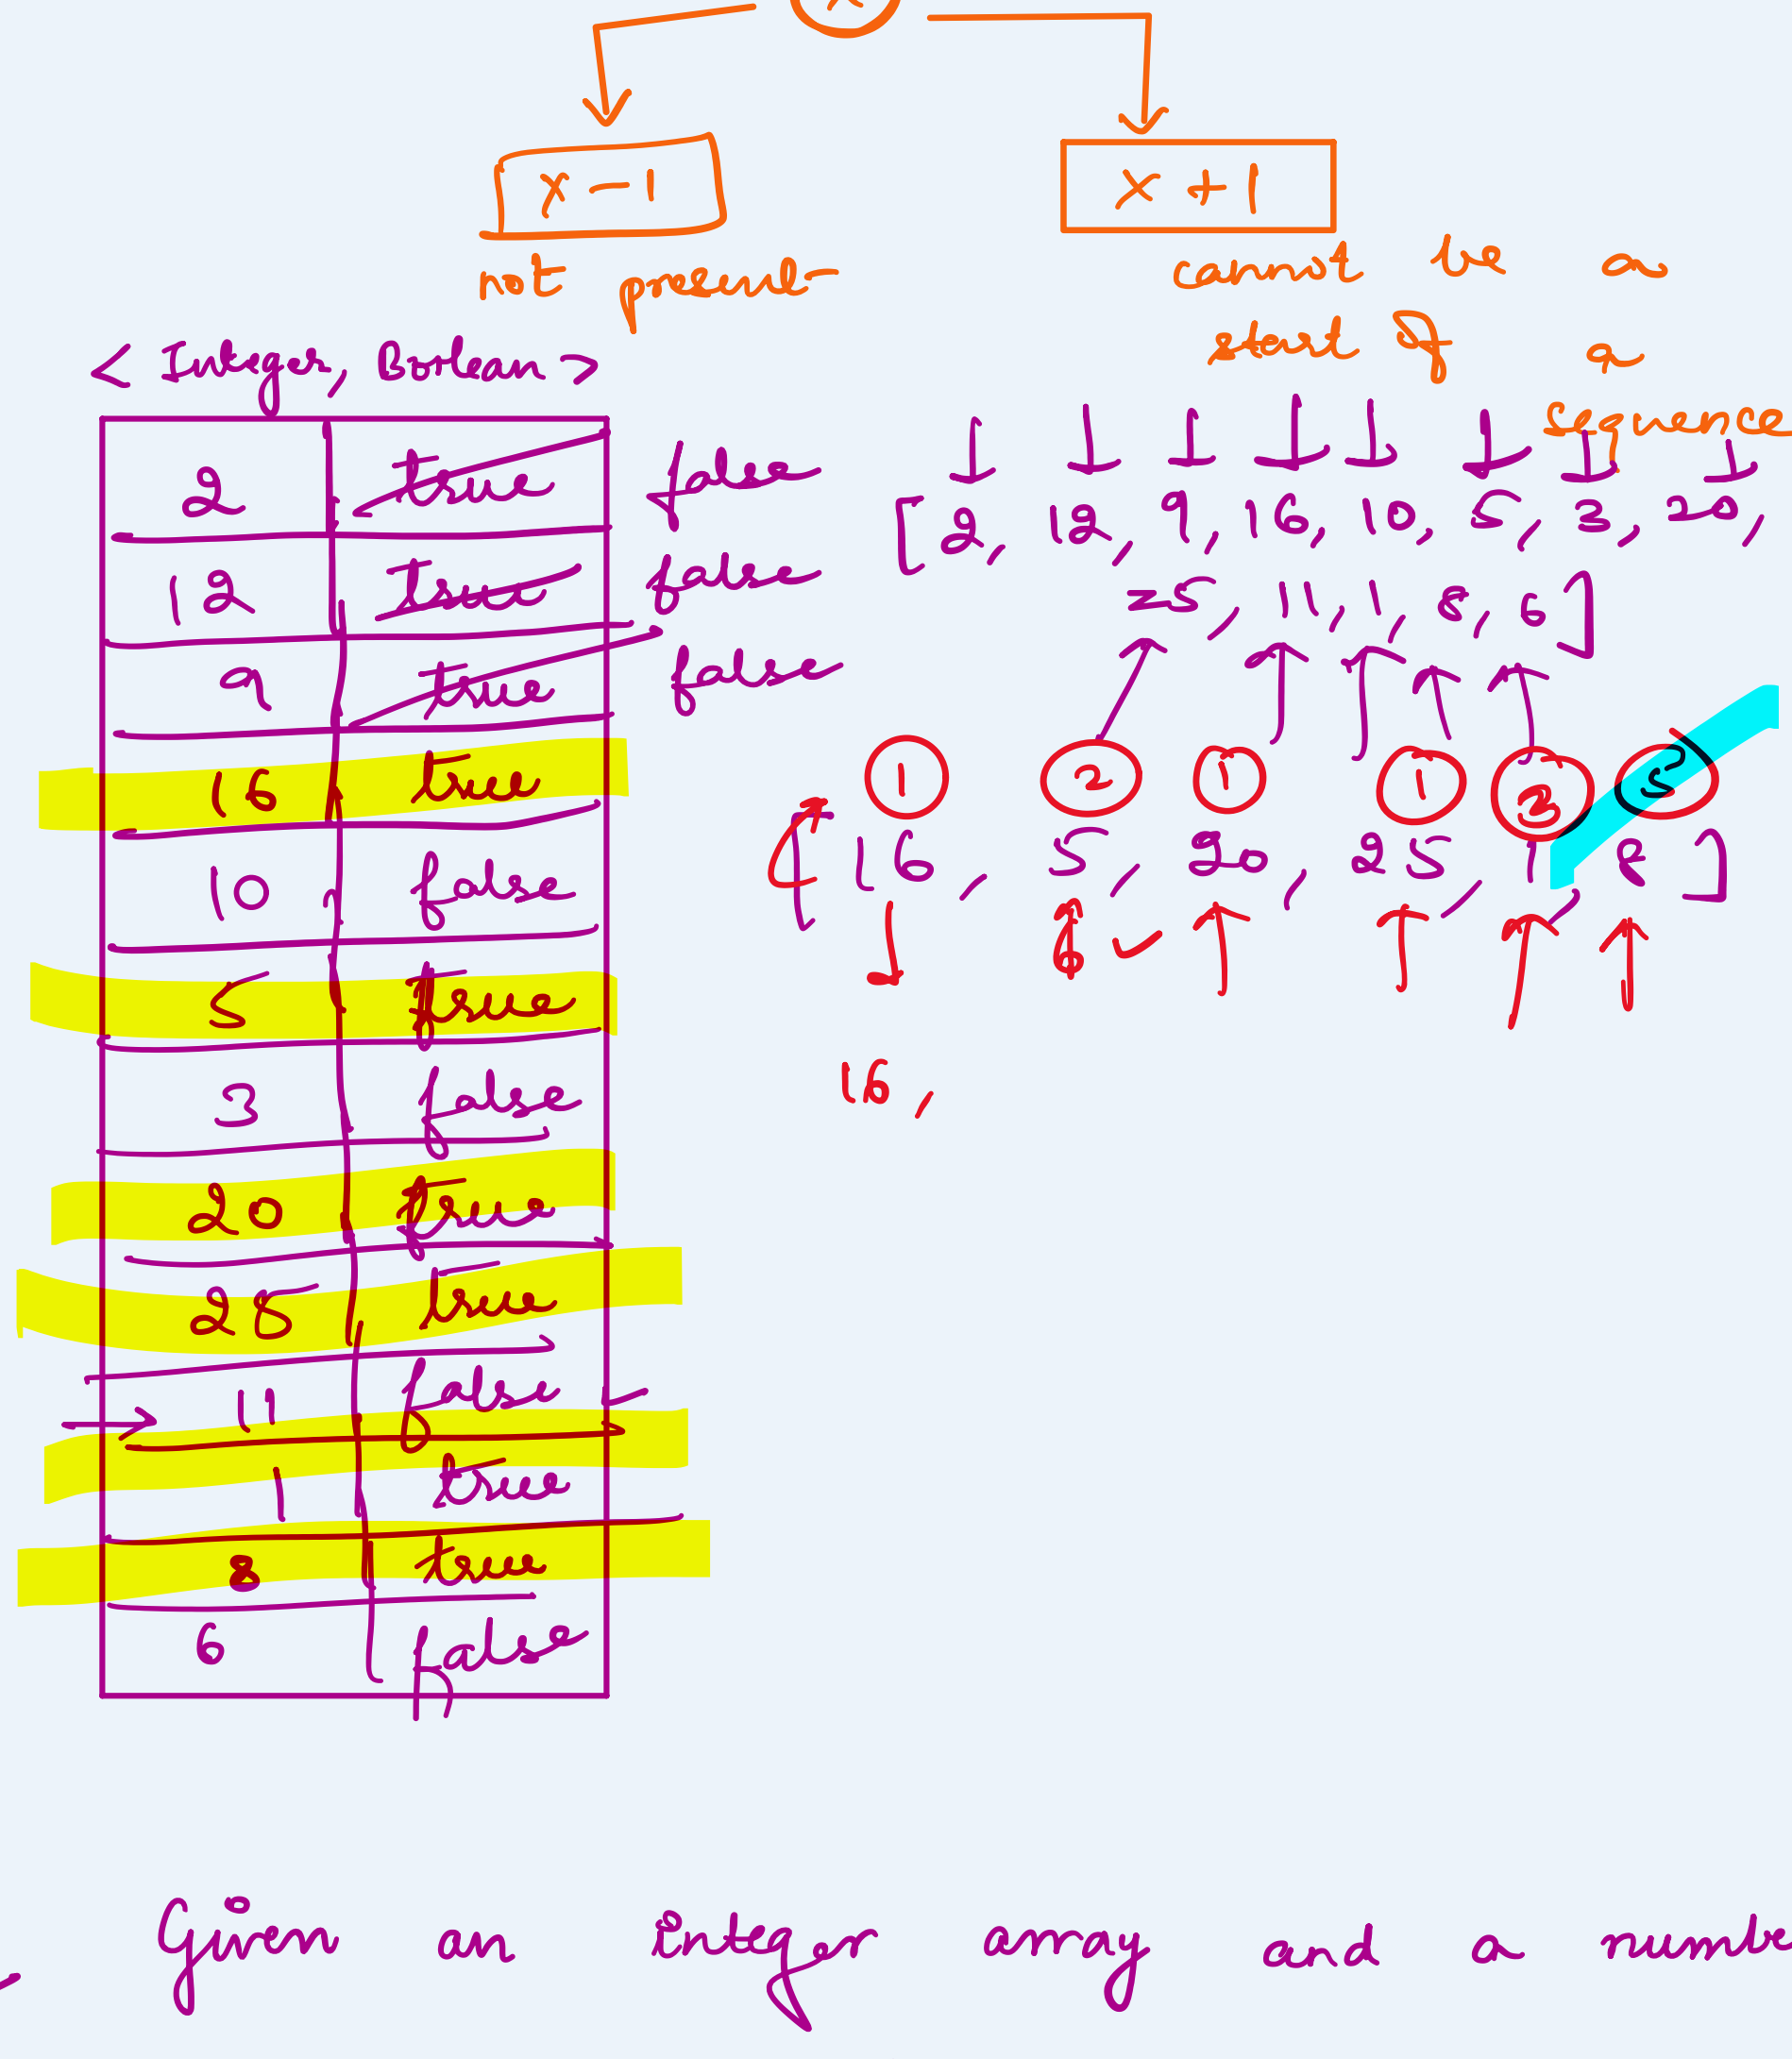 x
x - 1
x + 1
not present
cannot be a
start of a
sequence
< Integer, Boolean >
2 true false
12 true false
9 true false
16 true
10 false
5 true
3 false
20 true
25 true
11 false
1 true
8 true
6 false
[2, 12, 9, 16, 10, 5, 3, 20,
25, 11, 1, 8, 6]
1 2 1 1 3
[16, 5, 20, 25, 1, 8]
6
16,
Given an integer array and a numbe